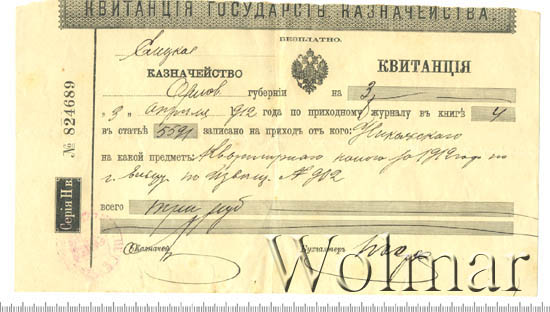 КВИТАНЦІЯ ГОСУДАРСТВ. КАЗНАЧЕЙСТВА
БЕЗПЛАТНО.
Елецкое
КАЗНАЧЕЙСТВО
КВИТАНЦІЯ
Орлов губерніи на 3
"3" апреля 1912 года по приходному журналу въ книгѣ 4
въ статьѣ 5591 записано на приходъ отъ кого:
на какой предметъ: Квартирного налога за 1912 год по
г. Ельцу по извещ. № 902
всего три руб
Казначей
Бухгалтеръ
№ 824689
Серія Н в.
Wolmar